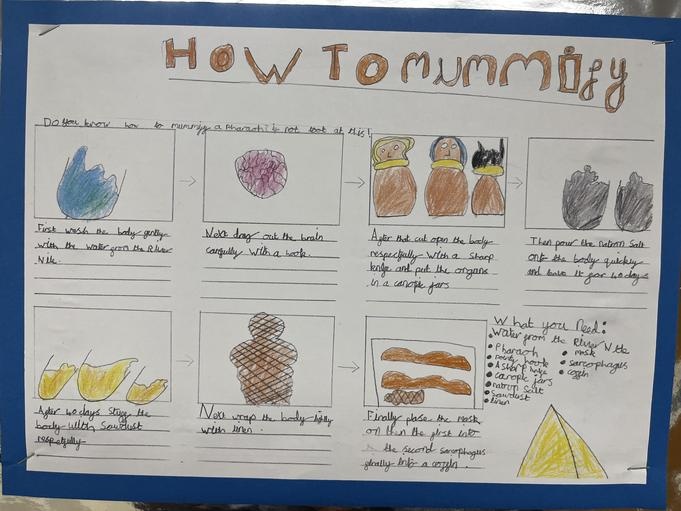 How To mummify
Do you know how to mummify a Pharaoh? If not look at this!
First wash the body gently
with the water from the River
Nile.
Next drag out the brain
carefully with a hook.
After that cut open the body
respectfully with a sharp
knife and put the organs
in a canopic jars
Then pour the natron salt
onto the body quickly
and leave it for 40 days
After 40 days stuff the
body with sawdust
respectfully
Next wrap the body tightly
with linen.
Finally place the mask
on then the first into
the second sarcophagus
finally into a coffin.
What you need:
Water from the River Nile
Pharaoh
pointy hook
A sharp knife
canopic jars
natron salt
sawdust
linen
mask
sarcophagus
coffin